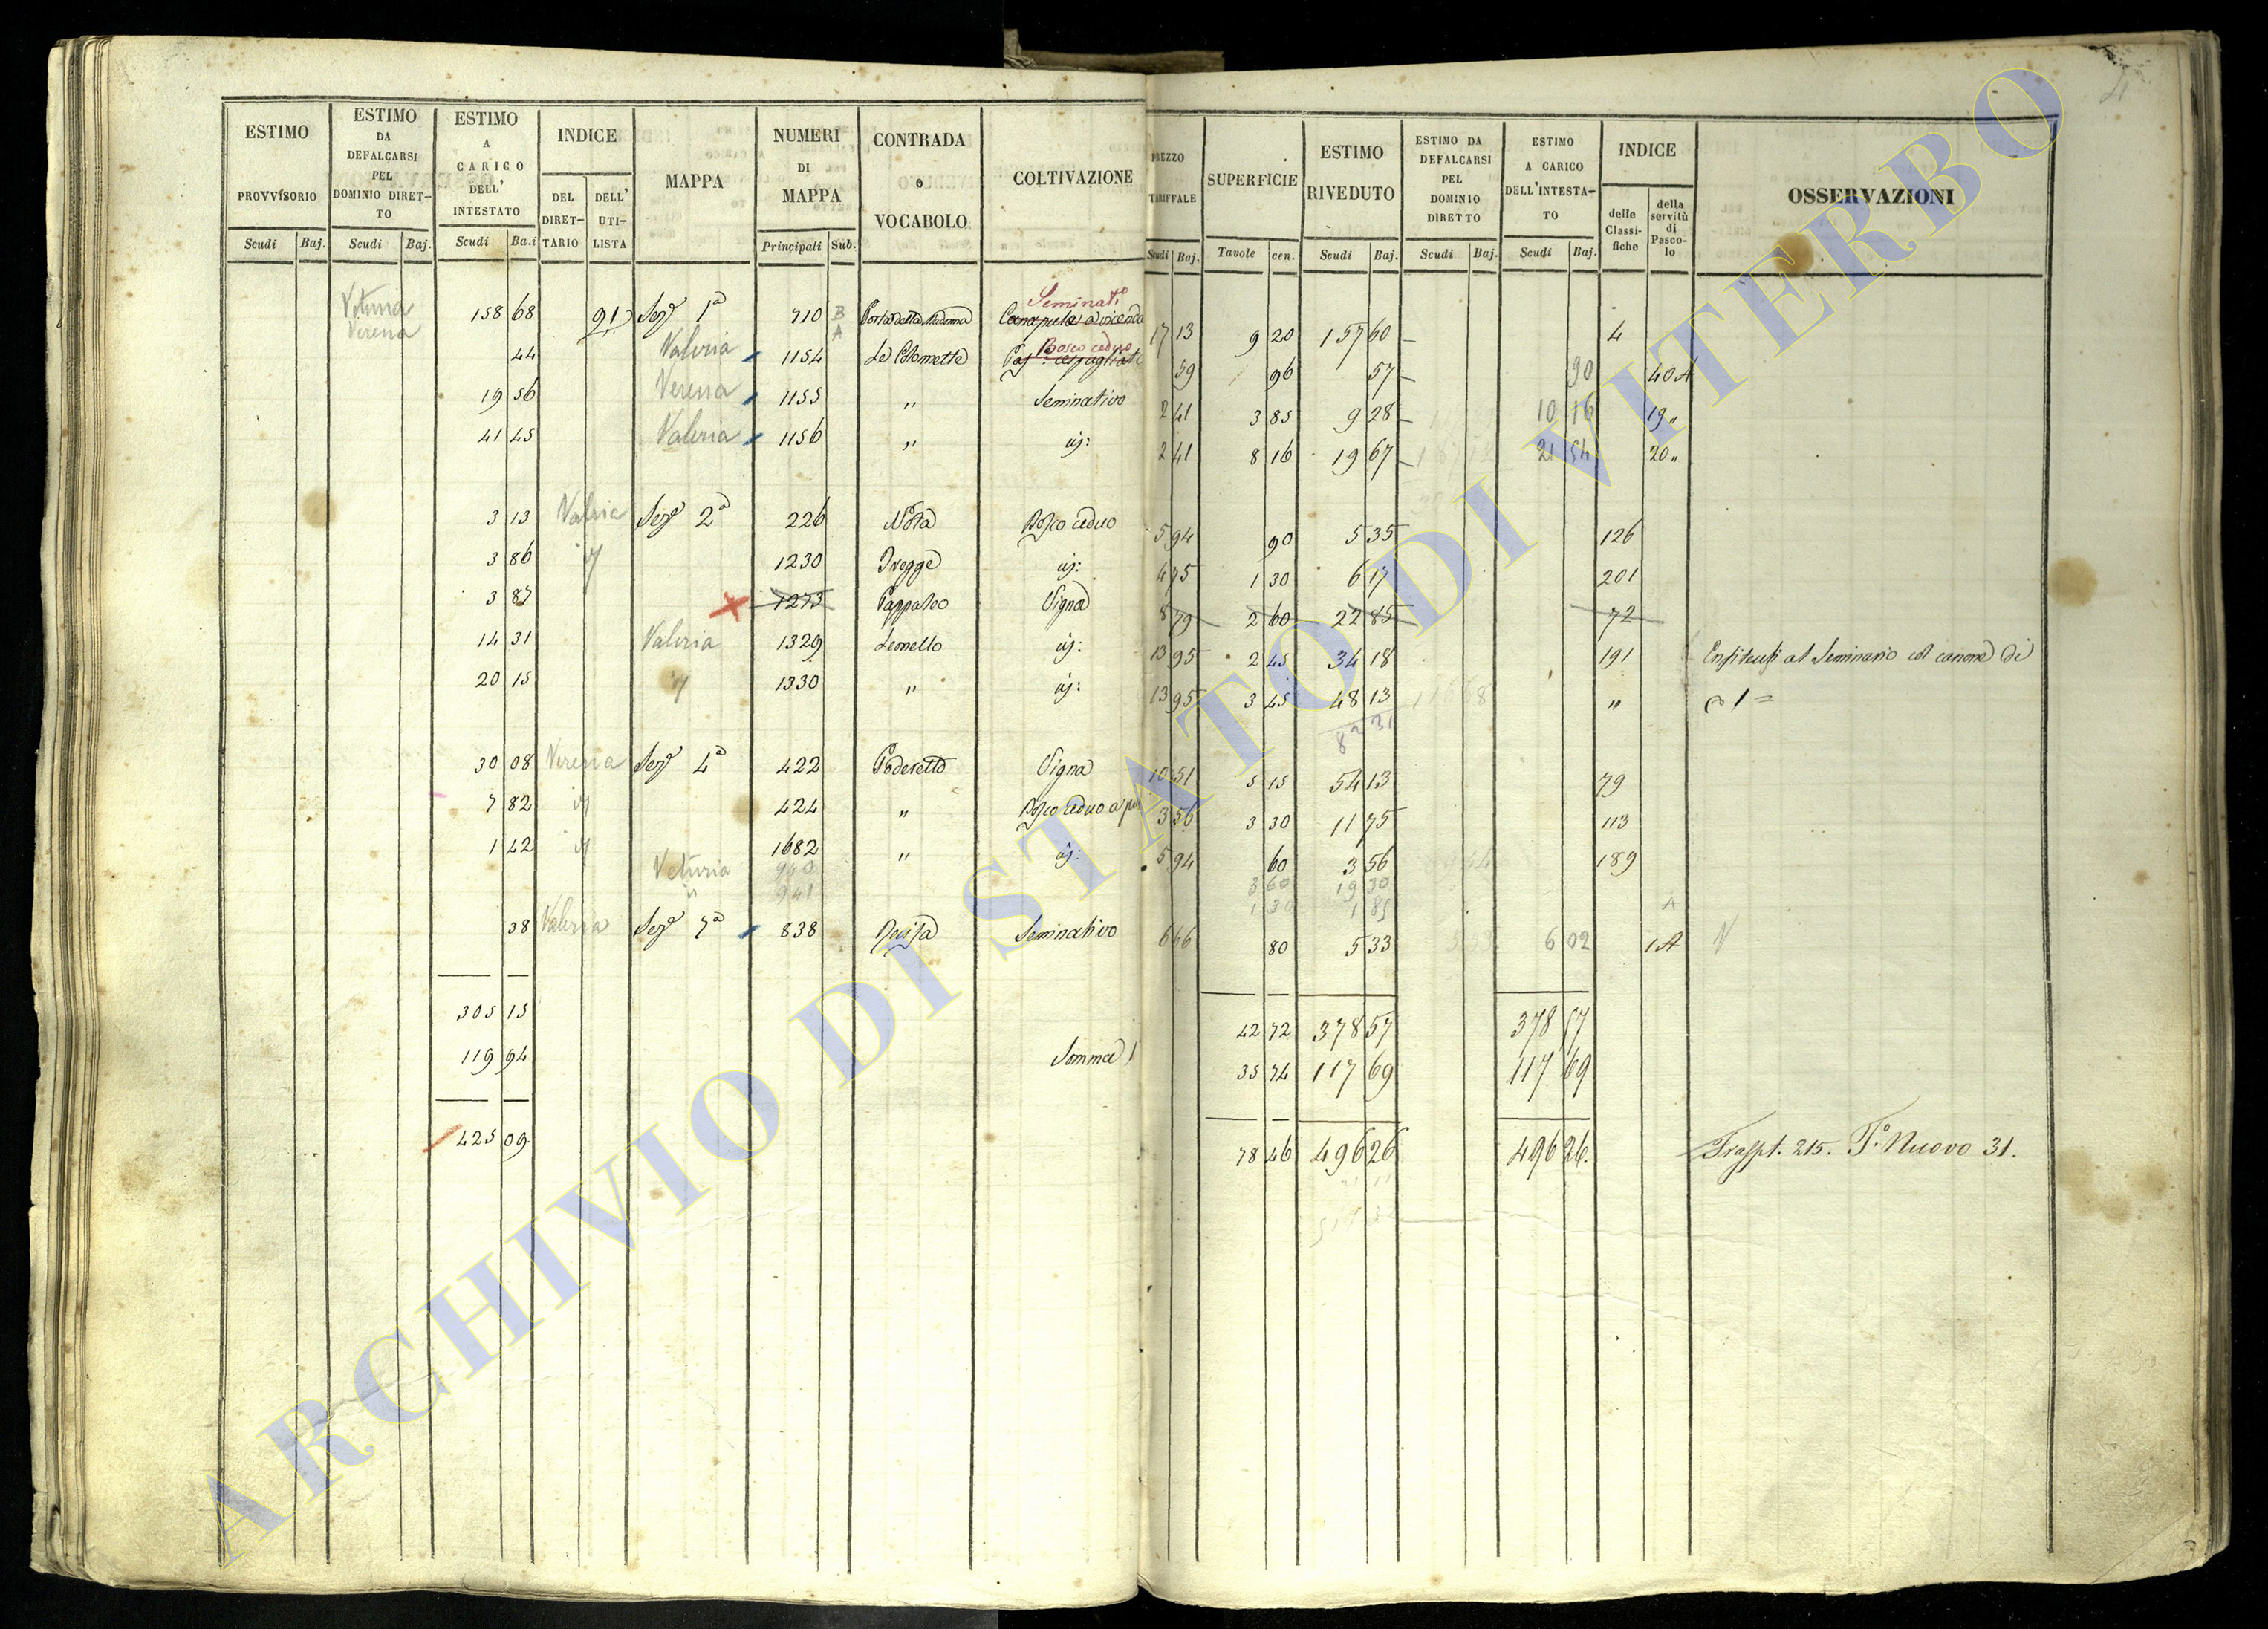 ESTIMO PROVVISORIO Scudi Baj.
ESTIMO DA DEFALCARSI PEL DOMINIO DIRETTO Scudi Baj.
ESTIMO A CARICO DELL' INTESTATO Scudi Ba.i
INDICE DEL DIRETTARIO DELL' UTILISTA
MAPPA
NUMERI DI MAPPA Principali Sub.
CONTRADA o VOCABOLO
COLTIVAZIONE
PREZZO TARIFFALE Scudi Baj.
SUPERFICIE Tavole cen.
ESTIMO RIVEDUTO Scudi Baj.
ESTIMO DA DEFALCARSI PEL DOMINIO DIRETTO Scudi Baj.
ESTIMO A CARICO DELL'INTESTATO Scudi Baj.
INDICE delle Classifiche della servitù di Pascolo
OSSERVAZIONI
Seminat.o
Veturia 158 68 91 Sez.e 1a 710 B Porta della Madonna Canapule a vicenda 17 13 9 20 157 60 4
Verena A
Valeria Bosco ceduo
44 1154 Le Colomette 59 96 57 90 40 A
19 56 Verena 1155 " Seminativo 2 41 3 85 9 28 10 16 19 "
41 45 Valeria 1156 " id: 2 41 8 16 19 67 21 54 20 "
3 13 Valeria Sez.e 2a 226 Bosco ceduo 5 94 90 5 35 126
3 86 id 1230 id: 4 75 1 30 6 17 201
3 87 1273 Pappaleo Vigna 8 79 2 60 22 85 72
14 31 Valeria 1329 Leonello id: 13 95 2 45 34 18 191 Enfiteusi al Seminario col canone di
20 15 id 1330 " id: 13 95 3 45 48 13 " 1 =
82 31
30 08 Verena Sez.e 4a 422 Poderetto Vigna 10 51 5 15 54 13 79
7 82 id 424 " Bosco ceduo a 3 56 3 30 11 75 113
1 42 id 1682 " id: 5 94 60 3 56 189
Veturia 940 3 60 19 30
" 941 1 30 1 85
38 Valeria Sez.e 7a 838 Seminativo 6 66 80 5 33 6 02 1 A
305 15 42 72 378 57 378 57
119 94 Somma 35 74 117 69 117 69
425 09 78 46 496 26 496 26. Traspt. 215. T.o Nuovo 31.
ARCHIVIO DI STATO DI VITERBO